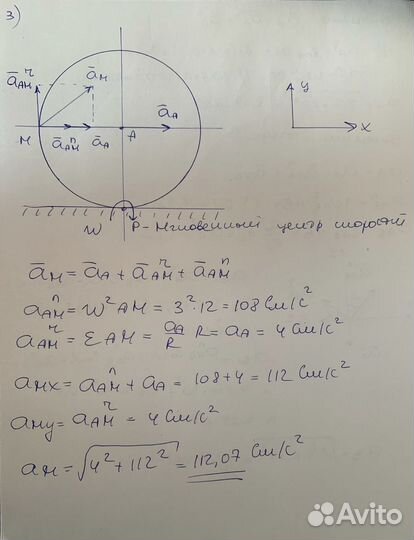 3)
ā^τ_AM ā_M ā_A y
M ā^n_AM ā_A A x
ω P - Мгновенный центр скоростей
ā_M = ā_A + ā^τ_AM + ā^n_AM
a^n_AM = ω² AM = 3² · 12 = 108 см/с²
a^τ_AM = ε AM = a_A/R R = a_A = 4 см/с²
a_Mx = a^n_AM + a_A = 108 + 4 = 112 см/с²
a_My = a^τ_AM = 4 см/с²
a_M = √(4² + 112²) = 112,07 см/с²
Avito